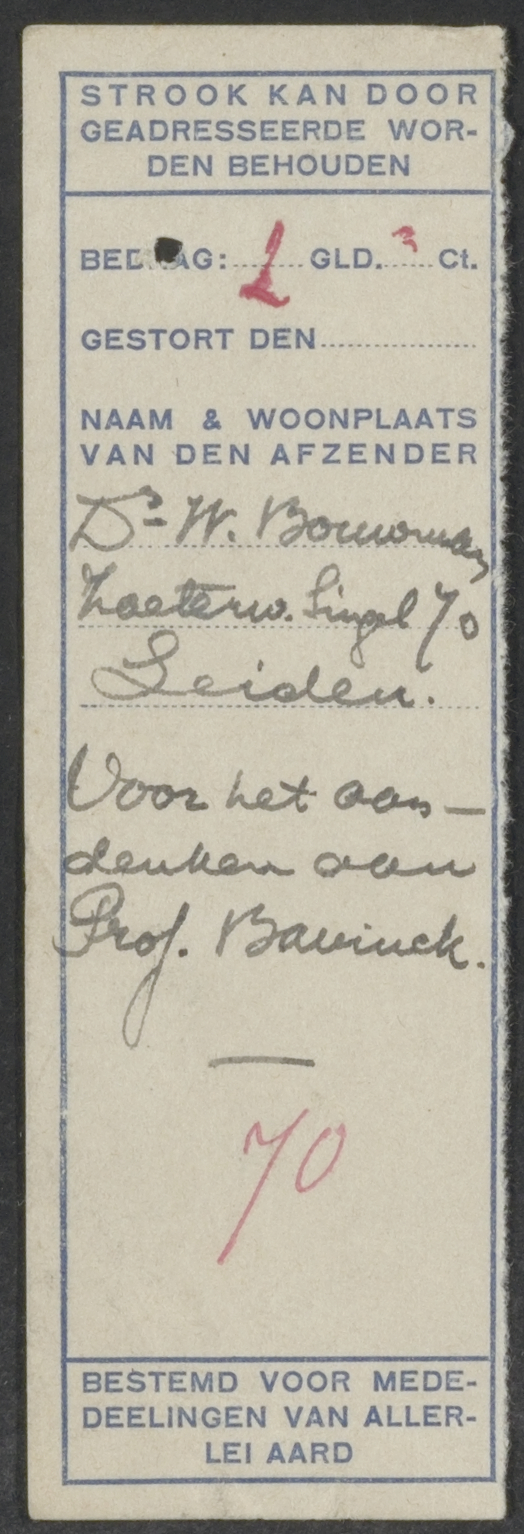 STROOK KAN DOOR
GEADRESSEERDE WOR-
DEN BEHOUDEN
BEDRAG: 1 GLD. Ct.
GESTORT DEN
NAAM & WOONPLAATS
VAN DEN AFZENDER
Dr W. Bouwman
Zoeterw. Singel 70
Leiden.
Voor het aan-
denken aan
Prof. Bavinck.
70
BESTEMD VOOR MEDE-
DEELINGEN VAN ALLER-
LEI AARD